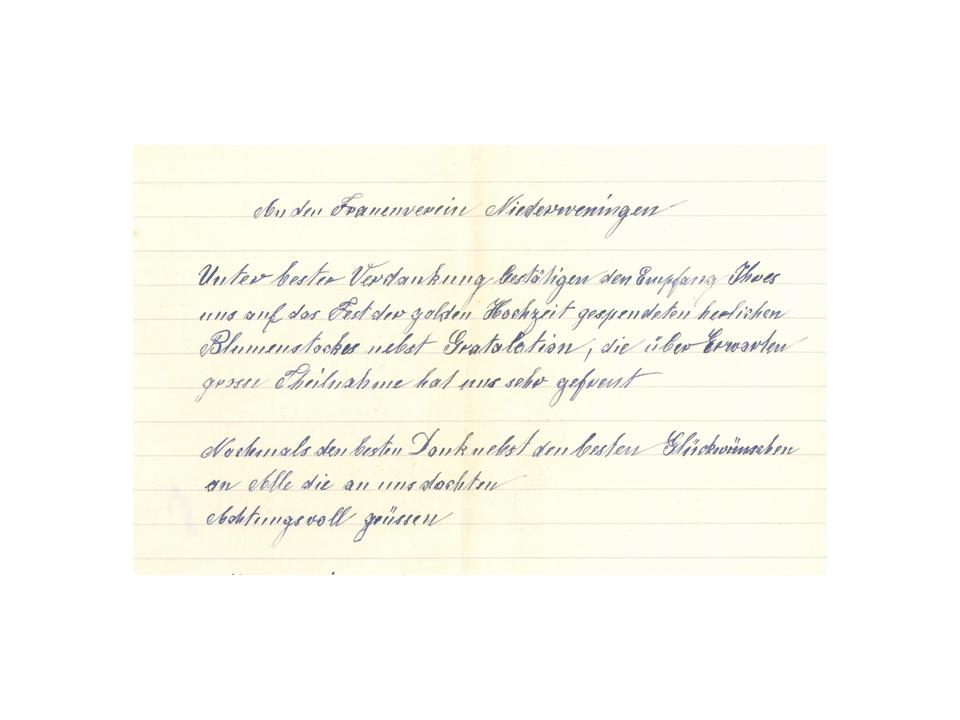 An den Frauenverein Niederweningen
Unter bester Verdankung bestätigen den Empfang Ihres
uns auf das Fest der golden Hochzeit gespendeten herlichen
Blumenstockes nebst Gratalation, die über Erwarten
grosse Theilnahme hat uns sehr gefreut
Nochmals den besten Dank nebst den besten Glückwünschen
an Alle die an uns dachten
Achtungsvoll grüssen